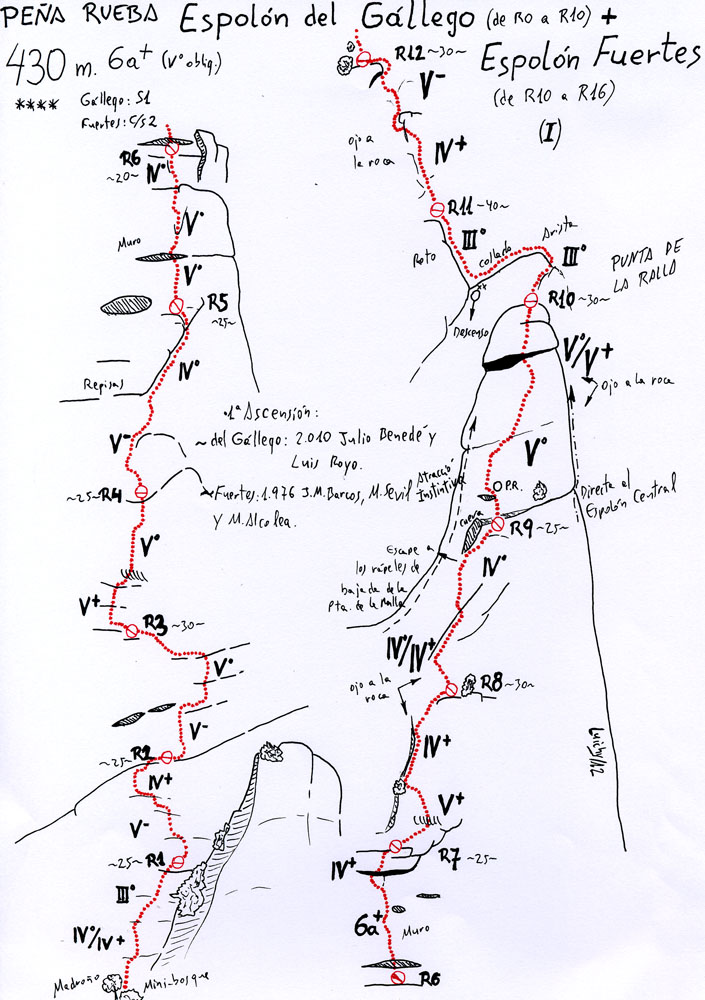 PEÑA RUEBA Espolón del Gállego (de R0 a R10) +
Espolón Fuertes
(de R10 a R16)
(I)
430 m. 6a+ (Vº oblig.)
**** Gállego: S1
Fuertes: C/S2
R6
~20~
IVº
Vº
Muro
Vº
R5
~25~
IVº
Repisas
V-
~25~ R4
Vº
V+
R3 ~30~
Vº
V-
~25~ R2
IV+
V-
~25~ R1
IIIº
IVº/IV+
Madroño
Mini-bosque
·1ª Ascensión:
~ del Gállego: 2.010 Julio Benedé y
Luis Royo.
Fuertes: 1.976 J.M. Barcos, M. Sevil
y M. Alcolea.
R12 ~30~
V-
Ojo a
la roca
IV+
R11 ~40~
IIIº
Roto
collado
Arista
IIIº
PUNTA DE
LA RALLA
Descenso
R10 ~30~
Vº/V+
Ojo a la roca
Vº
Atracción
Instintiva
P.R.
Directa al
Espolón Central
cueva
R9 ~25~
Escape a
los rápeles de
bajada de la
Pta. de la Ralla
IVº
IVº/IV+
Ojo a la
roca
R8 ~30~
IV+
V+
R7 ~25~
IV+
6a+
Muro
R6
Luichy/12